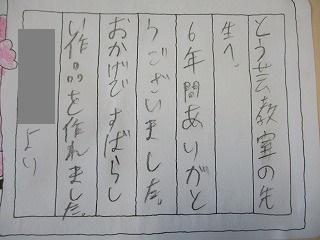 とう芸教室の先
生へ。
6年間ありがと
うございました。
おかげですばらし
い作品を作れました。
より